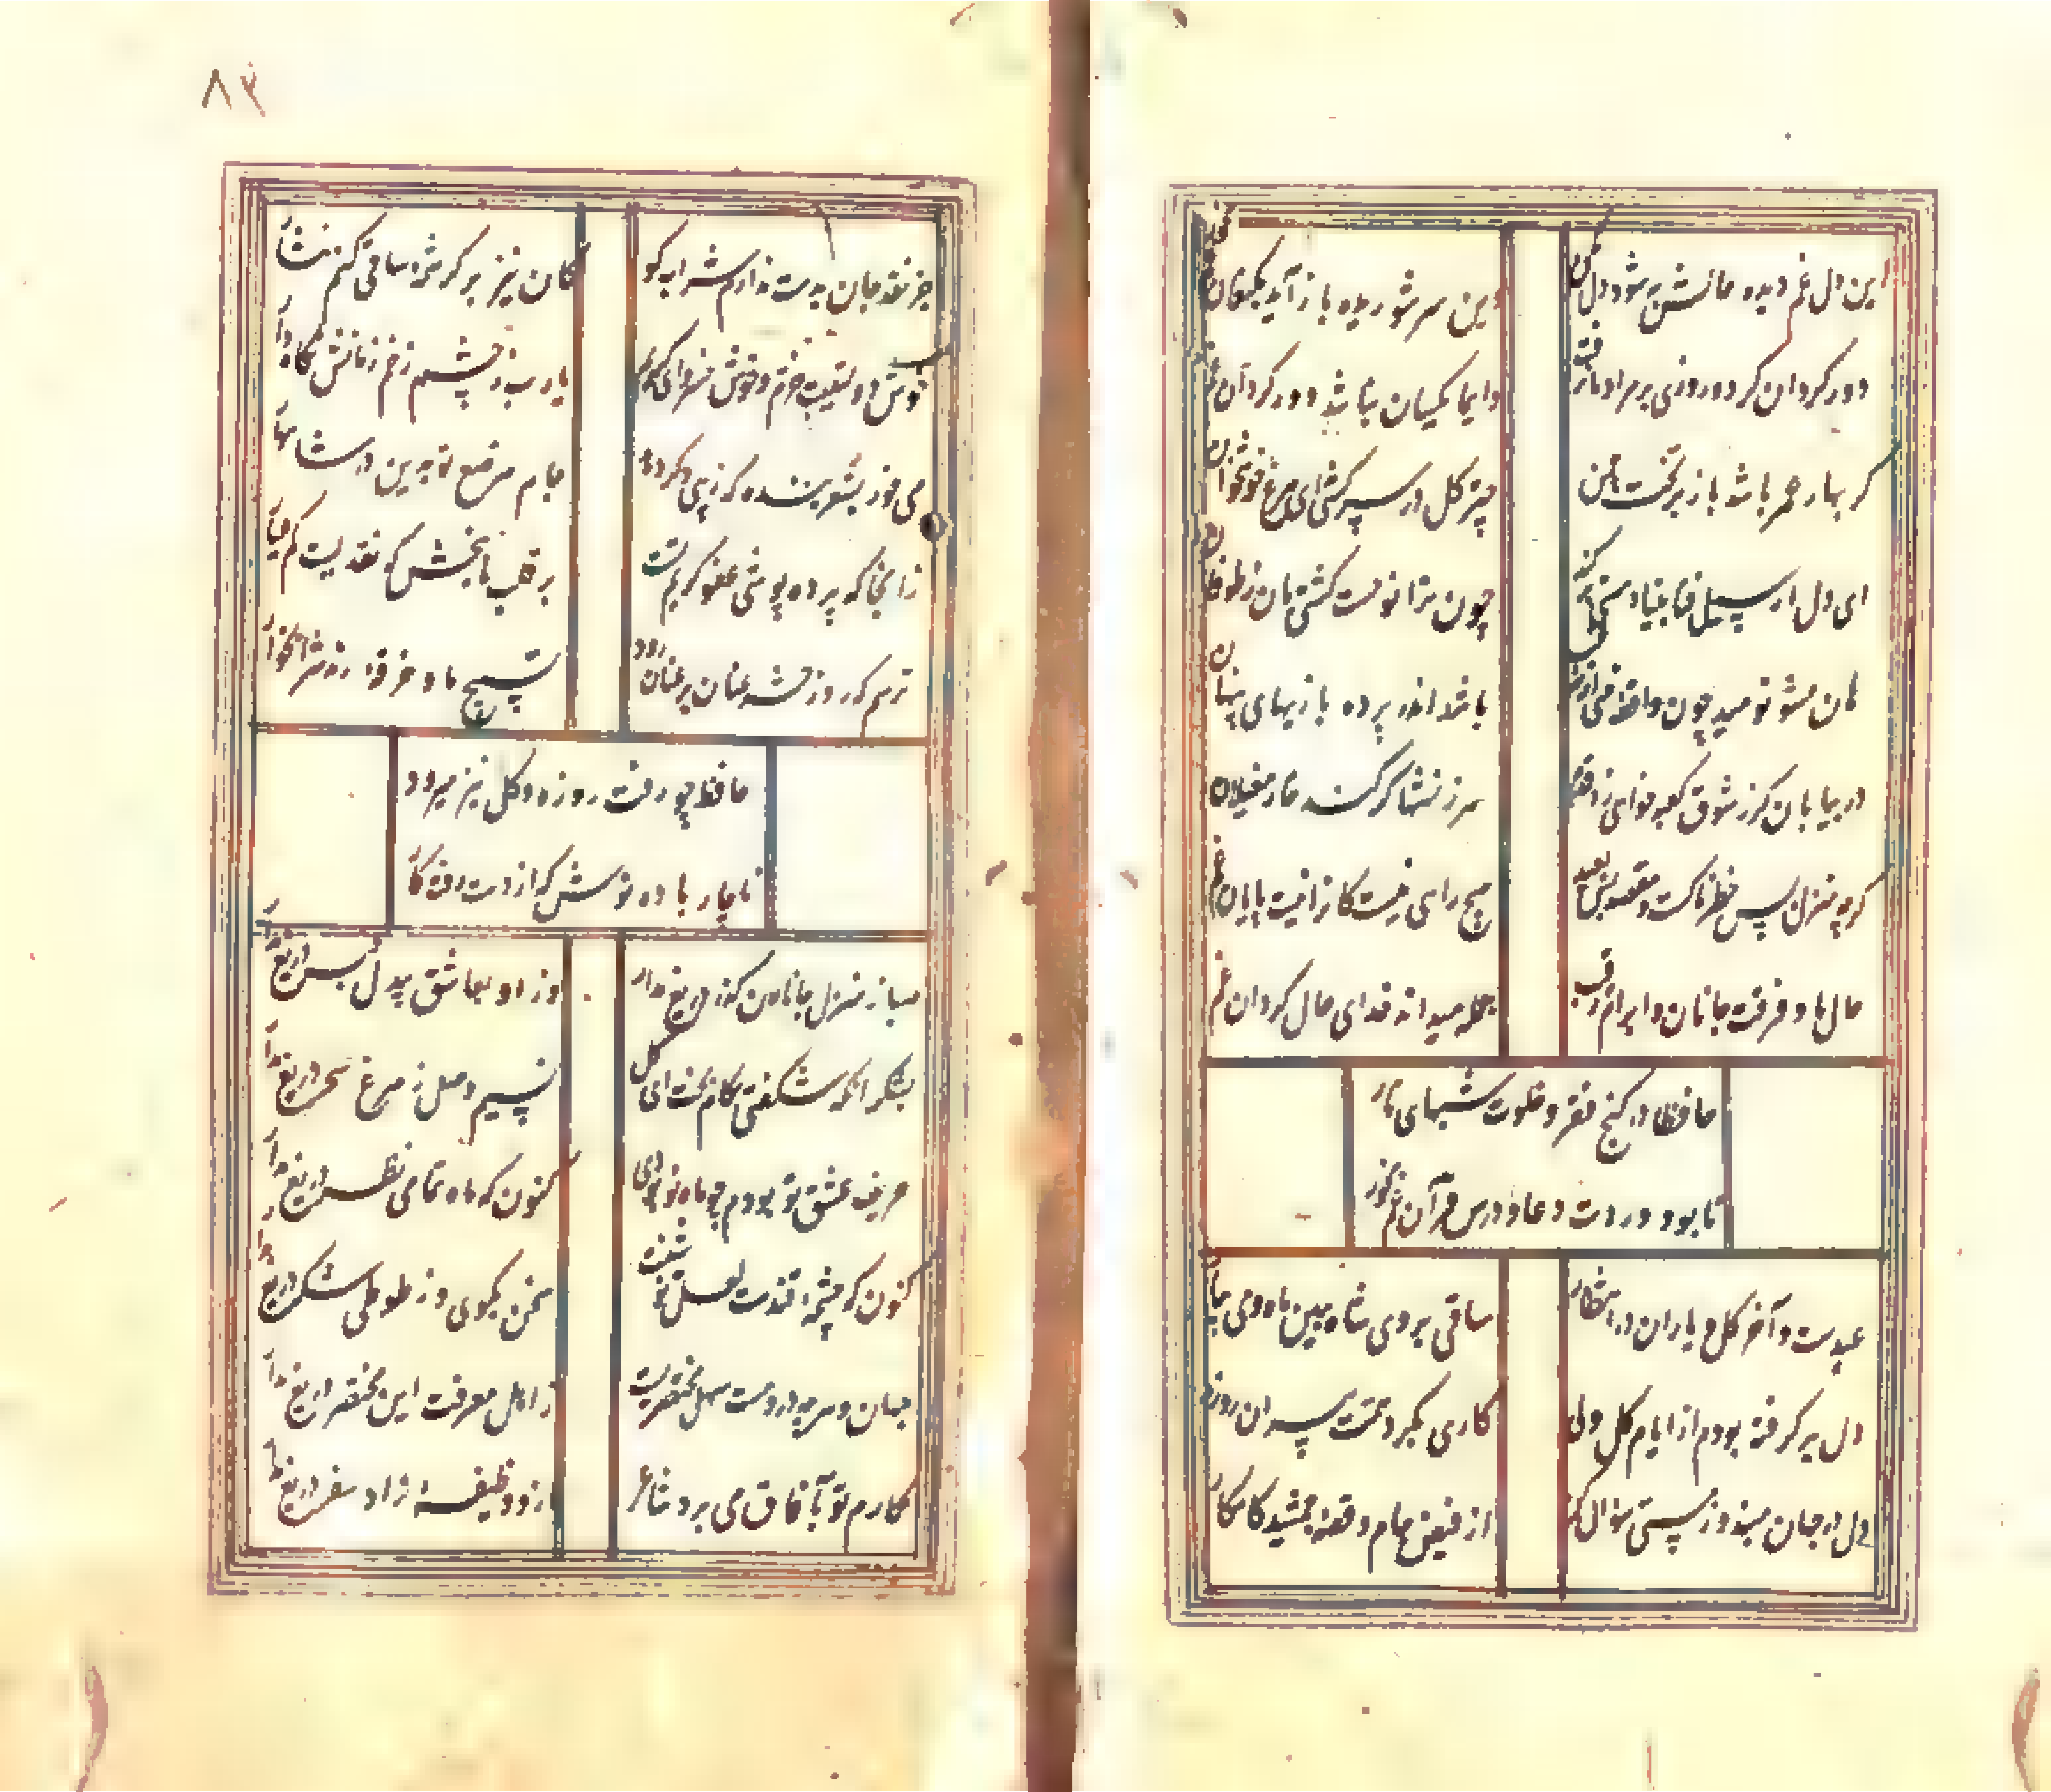 این دل غم دیده حالش به شود دل بد مکن
وین سر شوریده باز آید بسامان غم مخور
دور گردان گر دو روزی بر مراد ما نرفت
دایما یکسان نباشد دور گردان غم مخور
گر بهار عمر باشد باز بر تخت چمن
چتر گل در سر کشی ای مرغ خوشخوان
ای دل ار سیل فنا بنیاد هستی بر کند
چون ترا نوحست کشتی بان ز طوفان
هان مشو نومید چون واقف نه‌ای از سر
باشد اندر پرده بازیهای پنهان
در بیابان گر ز شوق کعبه خواهی زد قدم
سرزنشها گر کند خار مغیلان
گرچه منزل بس خطرناکست و مقصد بس بعید
هیچ راهی نیست کانرا نیست پایان غم
حال ما و فرقت جانان و ابرام رقیب
جمله میداند خدای حال گردان غم
حافظا در کنج فقر و خلوت شبهای تار
تا بود وردت دعا و درس قرآن غم مخور
عیدست و آخر گل و یاران در انتظار
ساقی بروی شاه ببین ماه و می بیار
دل بر گرفته بودم از ایام گل ولی
کاری بکرد همت پاکان روزه
دل در جهان مبند و ز مستی سؤال کن
از فیض جام و قصه جمشید کامکار
۸۳
جز نقد جان بدست ندارم شراب کو
کان نیز بر کرشمه ساقی کنم نثار
خوش دولتیست خرم و خوش خسروی کریم
یا رب ز چشم زخم زمانش نگاه دار
می خور بشعر بنده که زیبی دگر دهد
جام مرصع تو بدین در شاهوار
زانجا که پرده پوشی عفو کریم تست
بر قلب ما ببخش که نقدیست کم عیار
ترسم که روز حشر عنان بر عنان رود
تسبیح ما و خرقه رند شرابخوار
حافظ چو رفت روزه و گل نیز میرود
ناچار باده نوش که از دست رفت کار
صبا ز منزل جانان گذر دریغ مدار
وز او بعاشق بیدل خبر دریغ مدار
بشکر آنکه شکفتی بکام بخت ای گل
نسیم وصل ز مرغ سحر دریغ مدار
حریف عشق تو بودم چو ماه نو بودی
کنون که ماه تمامی نظر دریغ مدار
کنون که چشمه قندست لعل نوشینت
سخن بگوی و ز طوطی شکر دریغ مدار
جهان و هر چه دروست سهل مختصریست
ز اهل معرفت این مختصر دریغ مدار
مکارم تو بآفاق می برد شاعر
ازو وظیفه زاد سفر دریغ مدار